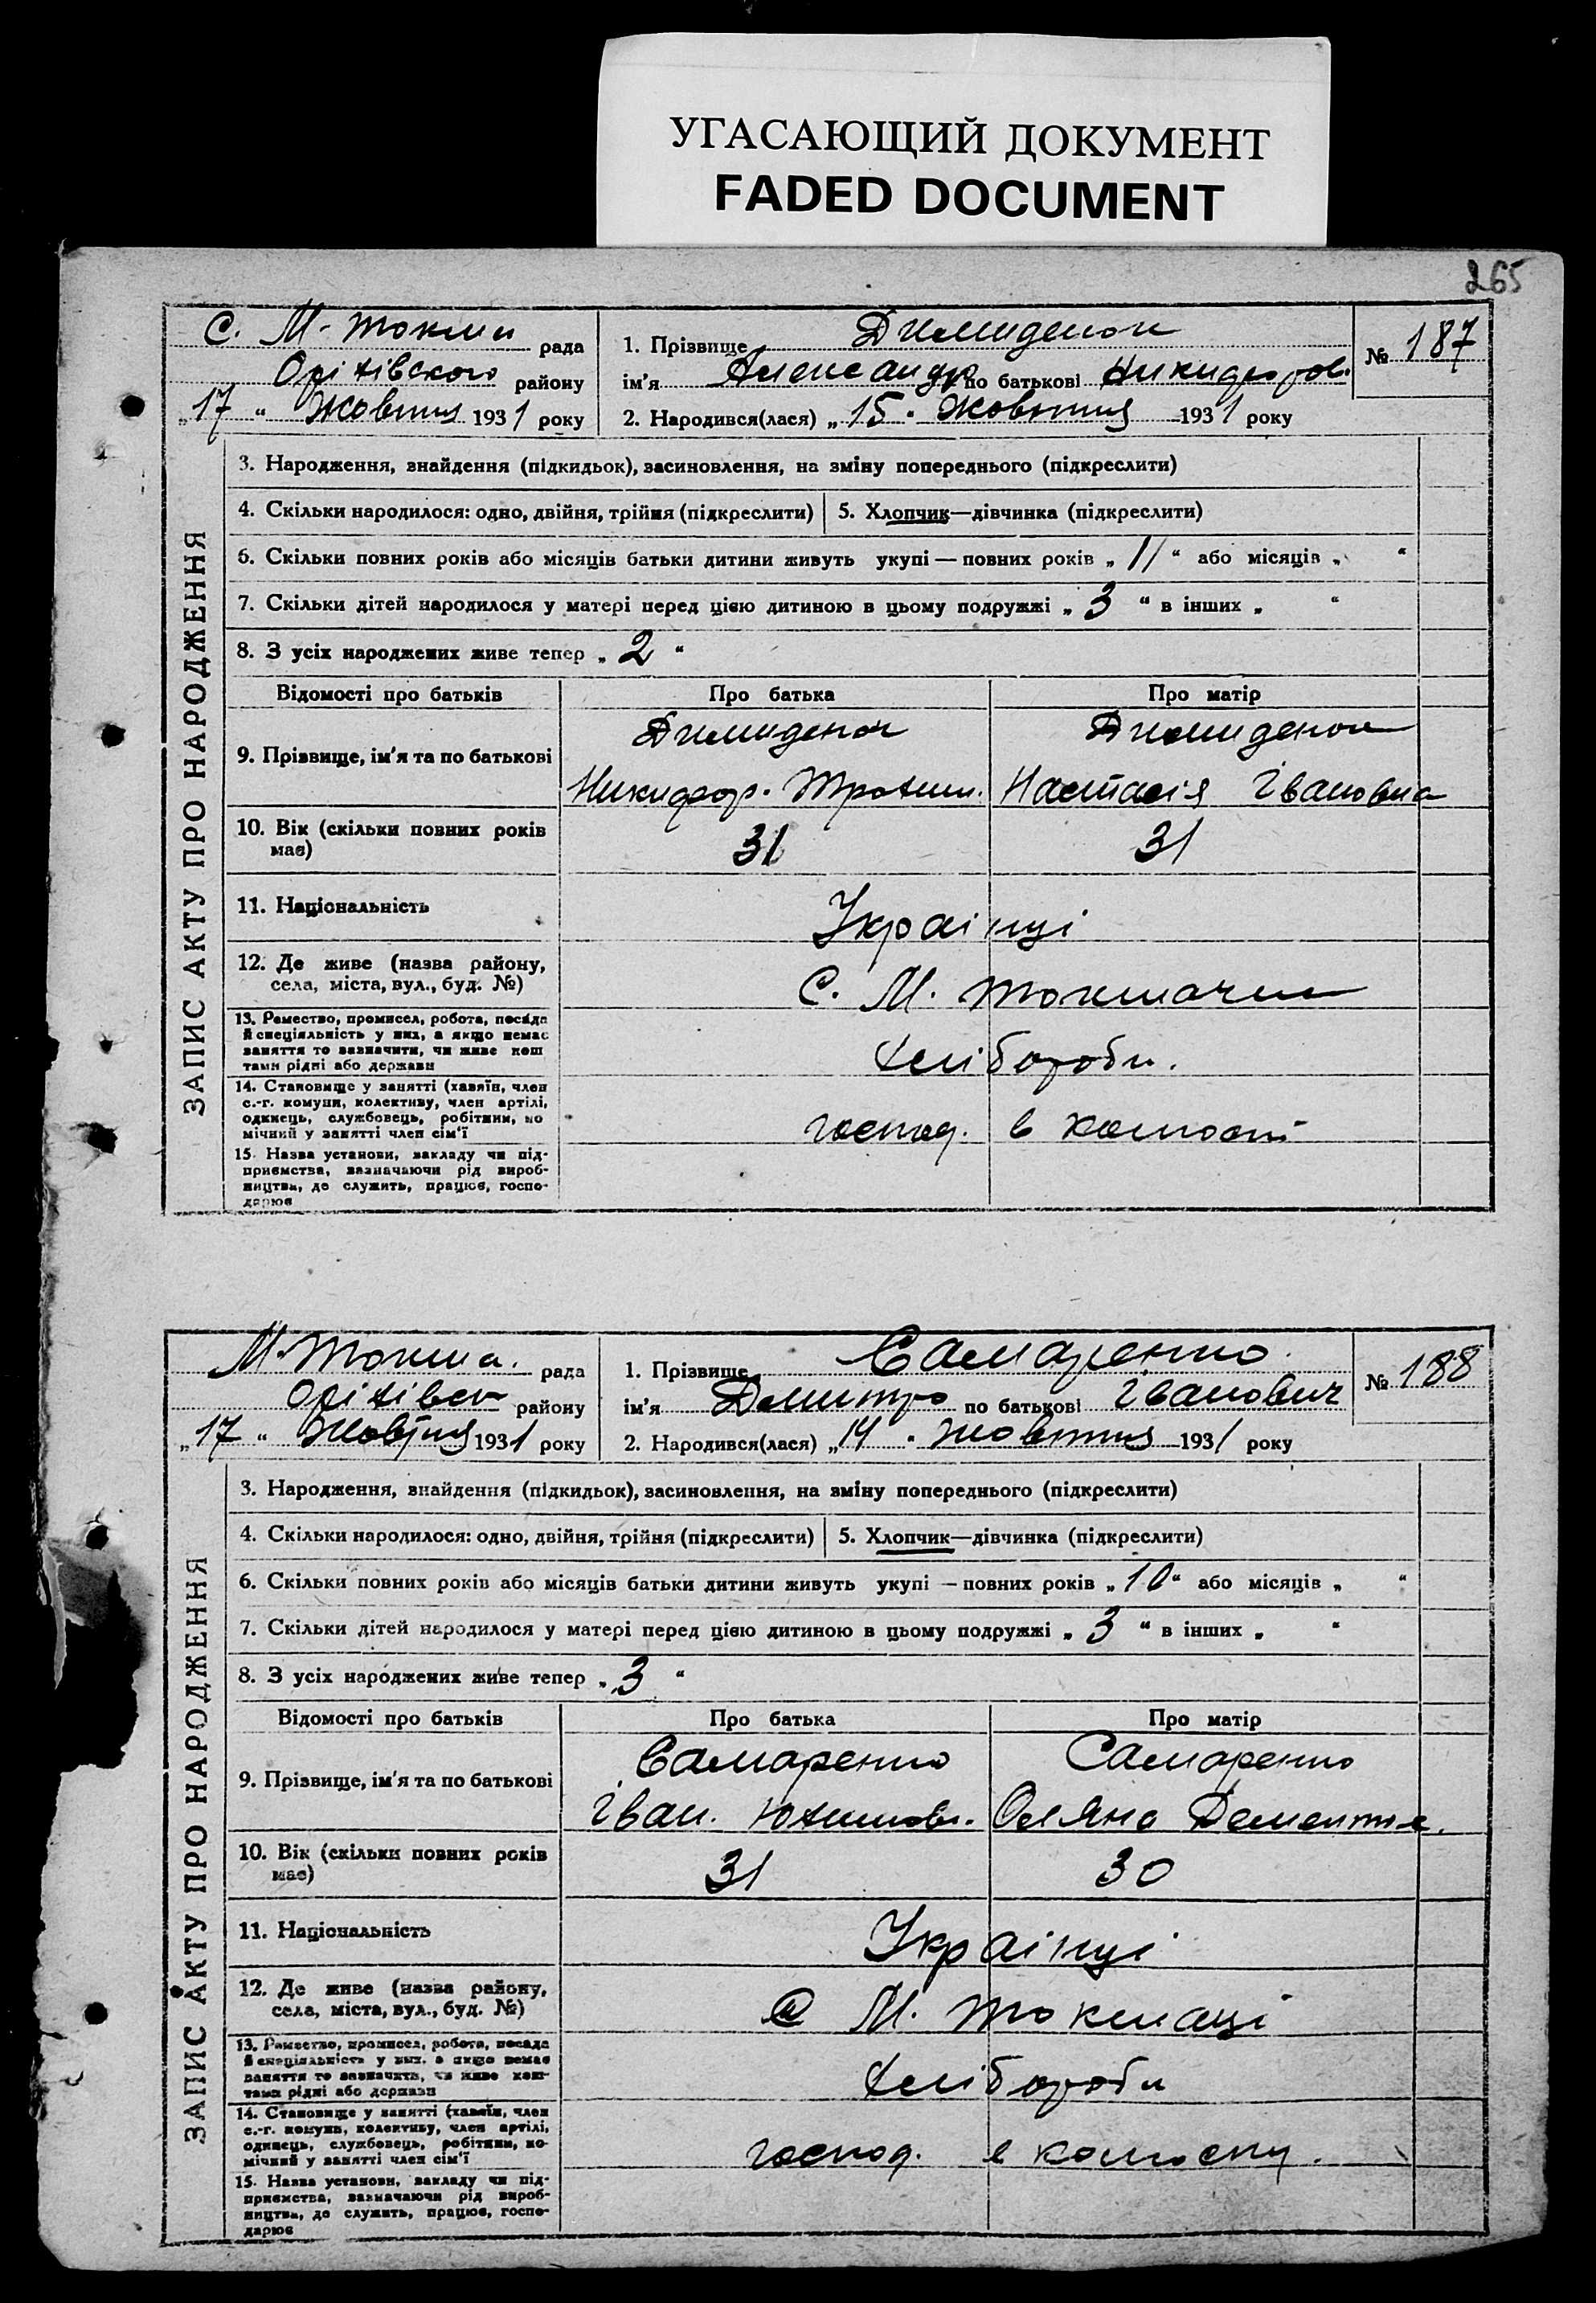 УГАСАЮЩИЙ ДОКУМЕНТ
FADED DOCUMENT
265
ЗАПИС АКТУ ПРО НАРОДЖЕННЯ
С. М-Токма рада
Оріхівського району
„17 “ Жовтня 1931 року
1. Прізвище Димиденок
ім'я Александр по батькові Никифоров.
2. Народився(лася) „15 “ Жовтня 1931 року
№ 187
3. Народження, знайдення (підкидьок), засиновлення, на зміну попереднього (підкреслити)
4. Скільки народилося: одно, двійня, трійня (підкреслити)
5. Хлопчик—дівчинка (підкреслити)
6. Скільки повних років або місяців батьки дитини живуть укупі — повних років „ 11 “ або місяців „ “
7. Скільки дітей народилося у матері перед цією дитиною в цьому подружжі „ 3 “ в інших „ “
8. З усіх народжених живе тепер „ 2 “
Відомості про батьків Про батька Про матір
9. Прізвище, ім'я та по батькові
Димиденок
Никифор. Трохим.
Димиденок
Настасія Івановна
10. Вік (скільки повних років
має)
31 31
11. Національність
Украінці
12. Де живе (назва району,
села, міста, вул., буд. №)
С. М. Токмачки
13. Ремество, промисел, робота, посада
й спеціяльність у них, а якщо немає
заняття то зазначити, чи живе кош
тами рідні або держави
хлібороби.
14. Становище у занятті (хазяїн, член
с.-г. комуни, колективу, член артілі,
одинець, службовець, робітник, по
мічний у занятті член сім'ї
господ. в
15. Назва установи, закладу чи під-
приємства, зазначаючи рід вироб-
ництва, де служить, працює, госпо-
дарює
ЗАПИС АКТУ ПРО НАРОДЖЕННЯ
М-Токма. рада
Оріхівск району
„17 “ Жовтня 1931 року
1. Прізвище Самаренко
ім'я Дмитро по батькові Іванович
2. Народився(лася) „14 “ Жовтня 1931 року
№ 188
3. Народження, знайдення (підкидьок), засиновлення, на зміну попереднього (підкреслити)
4. Скільки народилося: одно, двійня, трійня (підкреслити)
5. Хлопчик—дівчинка (підкреслити)
6. Скільки повних років або місяців батьки дитини живуть укупі — повних років „ 10 “ або місяців „ “
7. Скільки дітей народилося у матері перед цією дитиною в цьому подружжі „ 3 “ в інших „ “
8. З усіх народжених живе тепер „ 3 “
Відомості про батьків Про батька Про матір
9. Прізвище, ім'я та по батькові
Самаренко
Іван. Юхимов.
Самаренко
Оляна
10. Вік (скільки повних років
має)
31 30
11. Національність
Украінці
12. Де живе (назва району,
села, міста, вул., буд. №)
С М. Токмаці
13. Ремество, промисел, робота, посада
й спеціяльність у них, а якщо немає
заняття то зазначити, чи живе кош-
тами рідні або держави
хлібороби
14. Становище у занятті (хазяїн, член
с.-г. комуни, колективу, член артілі,
одинець, службовець, робітник, по-
мічний у занятті член сім'ї
господ.
15. Назва установи, закладу чи під-
приємства, зазначаючи рід вироб-
ництва, де служить, працює, госпо-
дарює